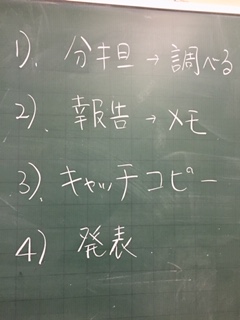 1). 分担→調べる
2). 報告→メモ
3). キャッチコピー
4) 発表